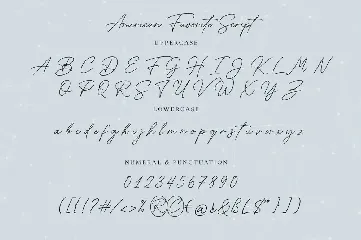 American Favorite Script
UPPERCASE
A B C D E F G H I J K L M N
O P Q R S T U V W X Y Z
LOWERCASE
a b c d e f g h i j k l m n o p q r s t u v w x y z
NUMERAL & PUNCTUATION
0 1 2 3 4 5 6 7 8 9 0